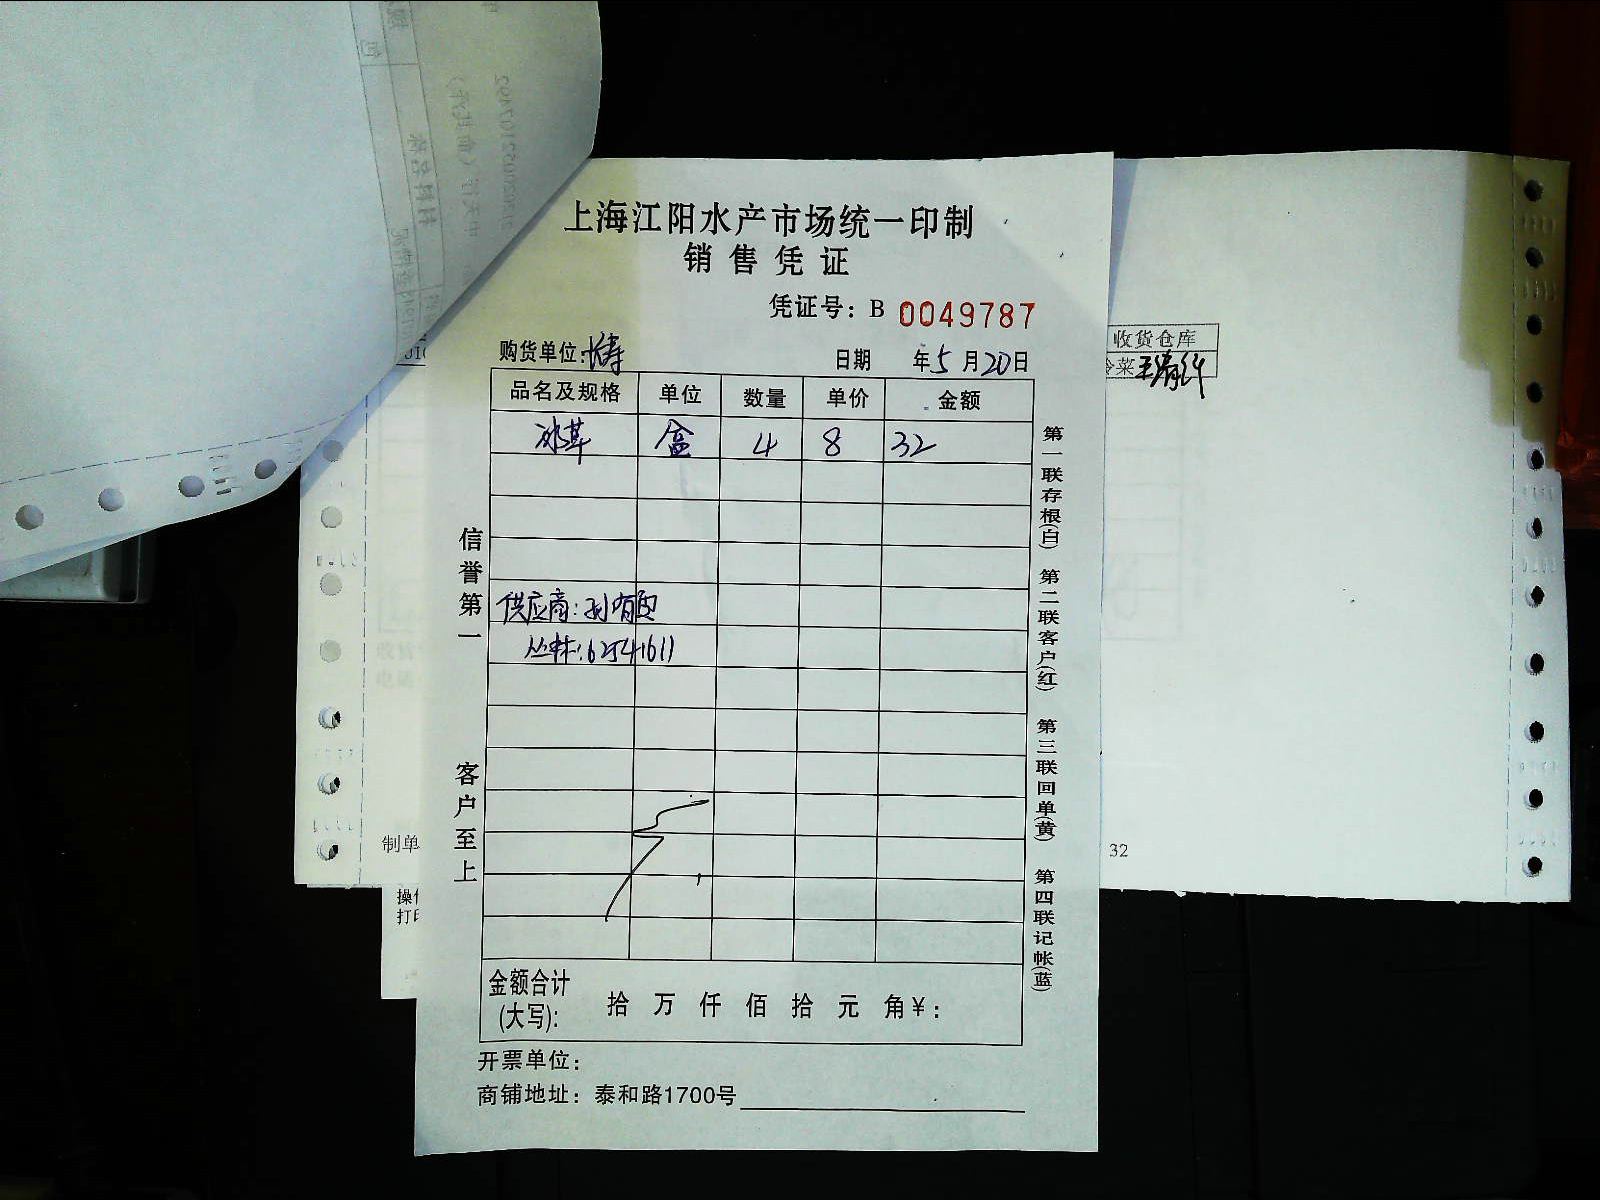 上海江阳水产市场统一印制
销售凭证
凭证号：B 0049787
购货单位：
日期 年5月20日
品名及规格 单位 数量 单价 金额
冰草 盒 4 8 32
供应商：孙
丛林：62541611
信誉第一
客户至上
第一联存根(白) 第二联客户(红) 第三联回单(黄) 第四联记帐(蓝)
金额合计
(大写)： 拾 万 仟 佰 拾 元 角 ¥：
开票单位：
商铺地址：泰和路1700号
收货仓库
冷菜
制单
32